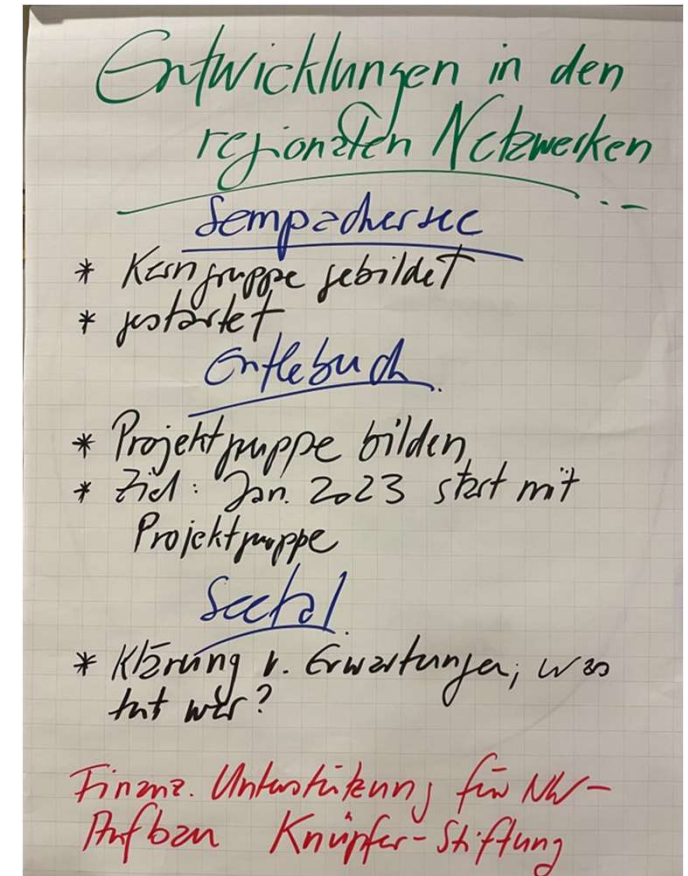 Entwicklungen in den
regionalen Netzwerken
...
Sempachersee
* Kerngruppe gebildet
* gestartet
Entlebuch
* Projektgruppe bilden
* Ziel: Jan. 2023 start mit
Projektgruppe
Seetal
* Klärung v. Erwartungen, was
tut wer?
Finanz. Unterstützung für NW-
Aufbau Knüpfer-Stiftung